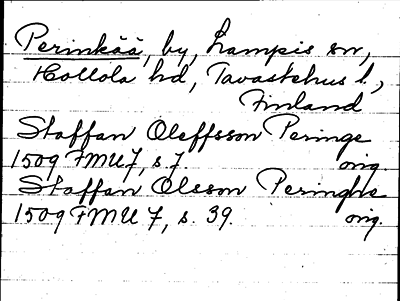 Perinkää, by, Lampis sn,
Hollola hd, Tavastehus l.,
Finland
Staffan Oleffsson Peringe
1509 FMU 7, s. 7 orig.
Staffan Olsson Peringhe
1509 FMU 7, s. 39. orig.